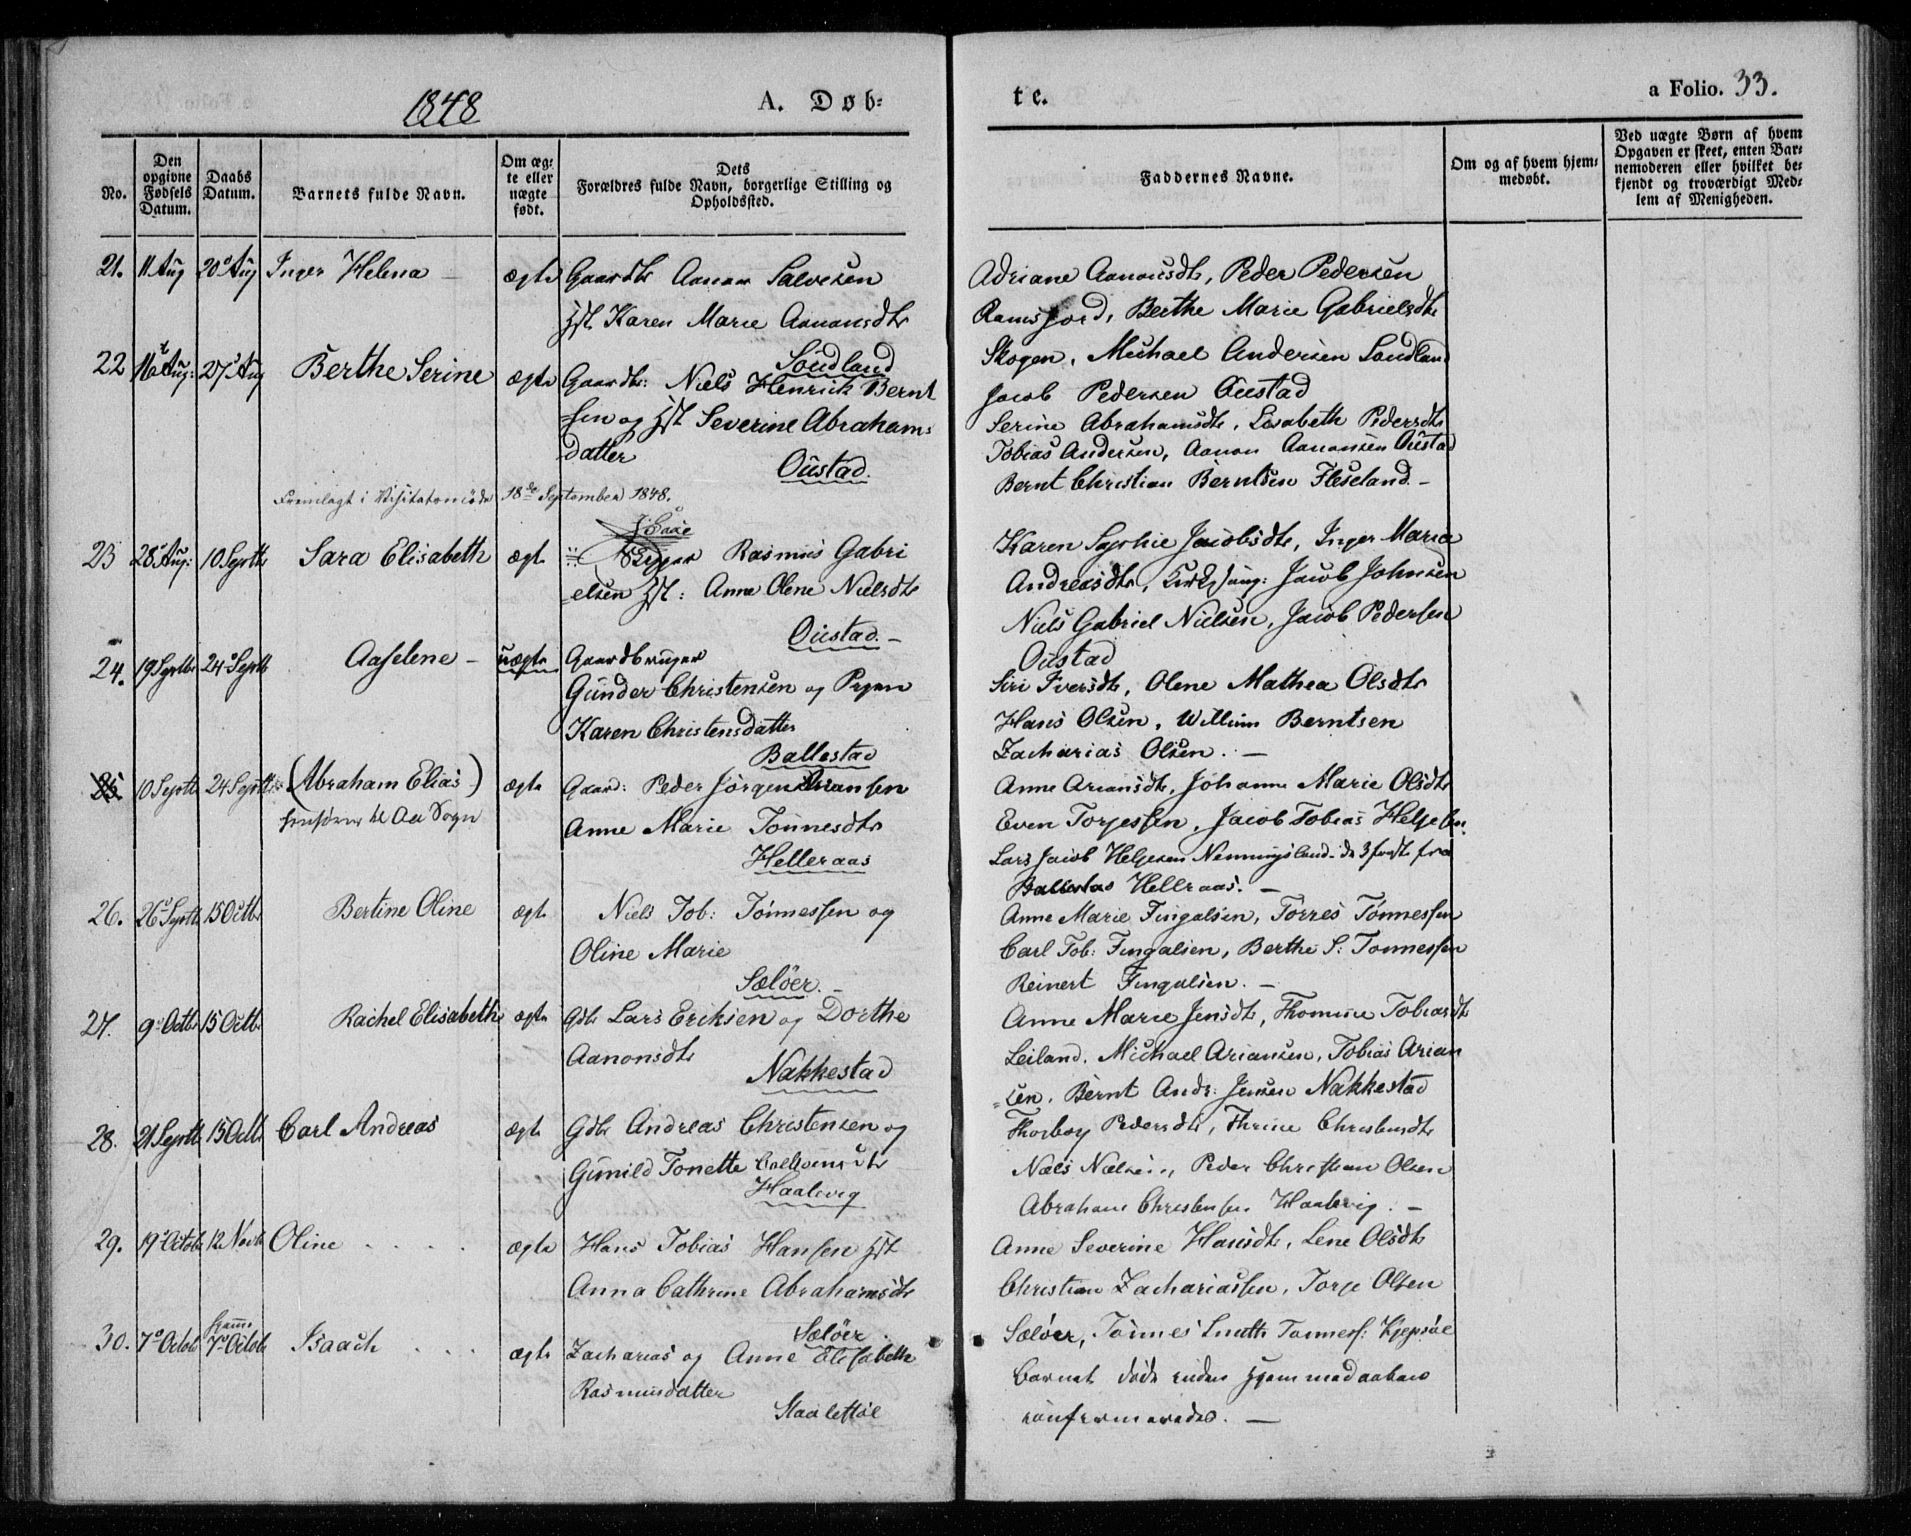 1848
A. Døb-
te.
a Folio. 33.
No.
Den opgivne Fødsels Datum.
Daabs Datum.
Barnets fulde Navn.
Om ægte eller uægte født.
Dets Forældres fulde Navn, borgerlige Stilling og Opholdssted.
Faddernes Navne.
Om og af hvem hjemmedøbt.
Ved uægte Børn af hvem Opgaven er skeet, enten Barnemoderen eller hvilket bekjendt og troværdigt Medlem af Menigheden.
21. 11 Aug 20 Aug Inger Helena – ægte Gaardbr Aanon Salvesen
Hst Karen Marie Aanonsdtr
Sondland
Adriane Aanonsdtr, Peder Pedersen
Ramsfjord, Berthe Marie Gabrielsdtr
Skogen, Michael Andersen Sondland
Jacob Pedersen Oustad
22 16 Aug: 27 Aug Berthe Serine ægte Gaardbr: Niels Henrick Bernt
sen og Hst Severine Abrahams-
datter
Oustad.
Serine Abrahamsdtr, Lisabeth Pedersdtr
Tobias Andersen, Aanon Aanonsen Oustad
Bernt Christian Berntsen Fleseland. –
Fremlagt i Visitatsmöde 18de September 1848.
23 28 Aug: 10 Septb Sara Elisabeth ægte Rasmus Gabri
elsen Hst: Anne Olene Nielsdtr
Oustad. –
Karen Sophie Jacobsdtr, Inger Marie
Andreasdtr, Kirkesang: Jacob Johnsen
Niels Gabriel Nielsen, Jacob Pedersen
Oustad
24. 19 Septbr 24 Septb Aaselene – uægte Gaardbruger
Gunder Christensen og Pigen
Karen Christensdatter
Ballestad
Siri Iversdtr, Olene Mathea Olsdtr
Hans Olsen, Willum Berntsen
Zacharias Olsen. –
25 10 Septb 24 Septb (Abraham Elias) ægte Gaard: Peder Jörgen Ariansen
henføres til Aa Sogn
Anne Marie Tönnesdtr
Helleraas
Anne Ariansdtr, Johanne Marie Olsdtr
Even Torjessen, Jacob Tobias Helgesen
Lars Jacob Helgesen Nenningsland. de 3 første fra
Helleraas. –
26. 26 Septb 15 Octbr Bertine Oline ægte Niels Tob: Tönnessen og
Oline Marie
Sælöer. –
Anne Marie Fingalsen, Torres Tönnessen
Carl Tob: Fingalsen, Berthe S: Tonnessen
Reinert Fingalsen. –
27. 9 Octbr 15 Octbr Rachel Elisabeth ægte Gdbr Lars Eriksen og Dorthe
Aanonsdtr
Nakkestad
Anne Marie Jensdtr, Thomine Tobiasdtr
Leiland. Michael Ariansen, Tobias Arian
sen. Bernt Andr: Jensen Nakkestad
28. 21 Septb 15 Octb Carl Andreas ægte Gdbr Andreas Christensen og
Gunild Tonette
Haalevig
Thorbor Pedersdtr, Thrine Christensdtr
Niels Nielsen, Peder Christian Olsen
Abraham Christensen Haalevig. –
29. 19 Octob 12 Novb Oline . . . . ægte Hans Tobias Hansen Hst
Anna Cathrine Abrahamsdtr
Sælöer.
Anne Severine Hansdtr, Lene Olsdtr
Christian Zachariassen, Torje Olsen
Sælöer, Tönnes Smith Tonness: Kjepsöe
30. 7 Octob hjemme 7 Octob Isaach . . . ægte Zacharias og Anne Elisabeth
Rasmusdatter
Staaletsöe
Barnet döde inden Hjemmedaaben
konfirmeredes. –